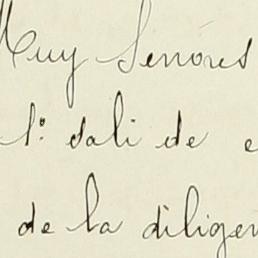 Muy Señores
1º: sali de e
de la diligen